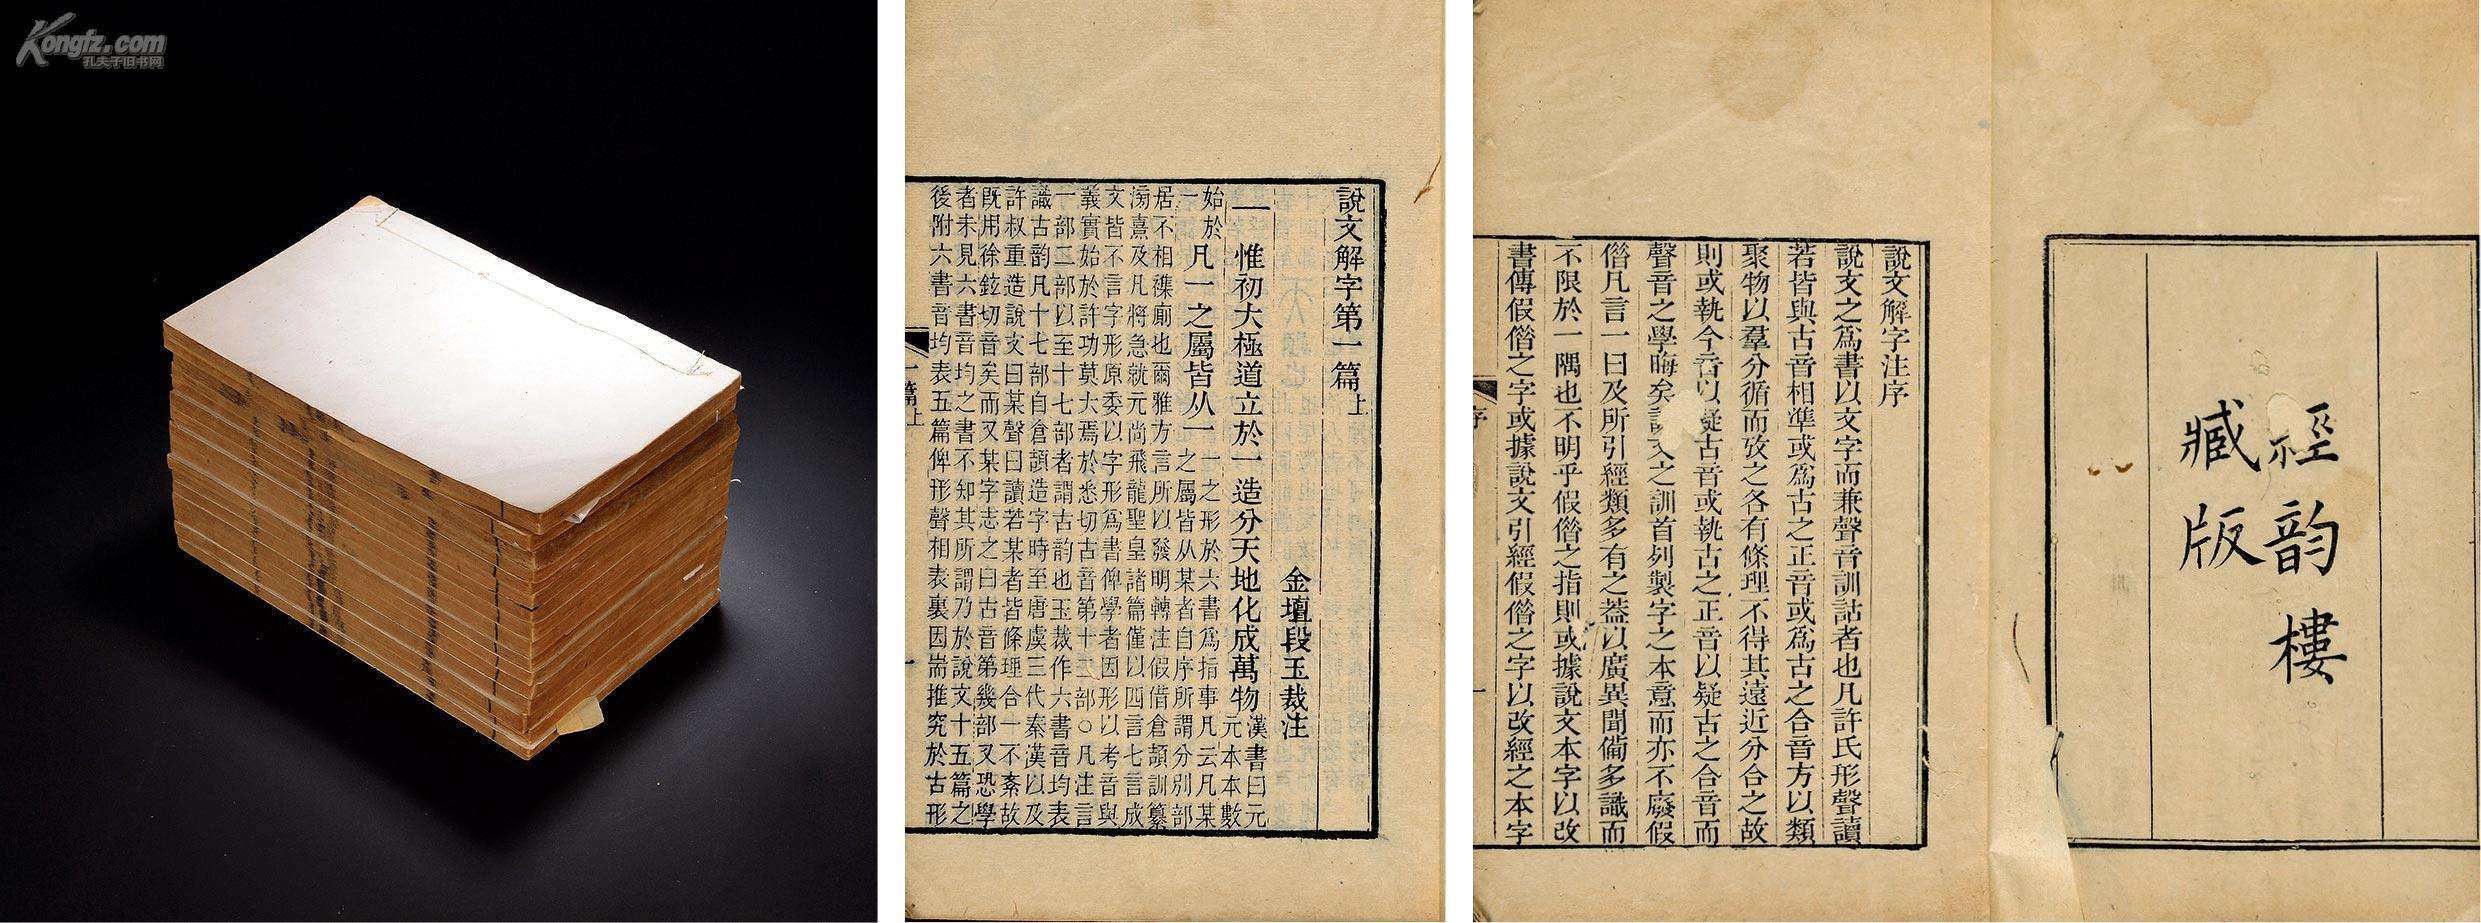 Kongfz.com
孔夫子旧书网
說文解字第一篇上
金壇段玉裁注
一 惟初大極道立於一造分天地化成萬物漢書曰元元本本數
始於一
凡一之屬皆从一一之形於六書爲指事凡云凡某之屬皆从某者自序所謂分別部
居不相襍廁也爾雅方言所以發明轉注假借倉頡訓纂
滂熹及凡將急就元尚飛龍聖皇諸篇僅以四言七言成
文皆不言字形原委以字形爲書俾學者因形以考音與
義實始於許功莫大焉於悉切古音第十二部○凡注言
一部二部以至十七部者謂古韵也玉裁作六書音均表
識古韵凡十七部自倉頡造字時至唐虞三代秦漢以及
許叔重造說文曰某聲曰讀若某者皆條理合一不紊故
既用徐鉉切音矣而又某字志之曰古音第幾部又恐學
者未見六書音均之書不知其所謂乃於說文十五篇之
後附六書音均表五篇俾形聲相表裏因耑推究於古形
一篇上
一
經韵樓
臧版
說文解字注序
說文之爲書以文字而兼聲音訓詁者也凡許氏形聲讀
若皆與古音相準或爲古之正音或爲古之合音方以類
聚物以羣分循而攷之各有條理不得其遠近分合之故
則或執今音以疑古音或執古之正音以疑古之合音而
聲音之學晦矣說文之訓首列製字之本意而亦不廢假
僭凡言一曰及所引經類多有之葢以廣異聞僃多識而
不限於一隅也不明乎假僭之指則或據說文本字以改
書傳假僭之字或據說文引經假僭之字以改經之本字
序
一